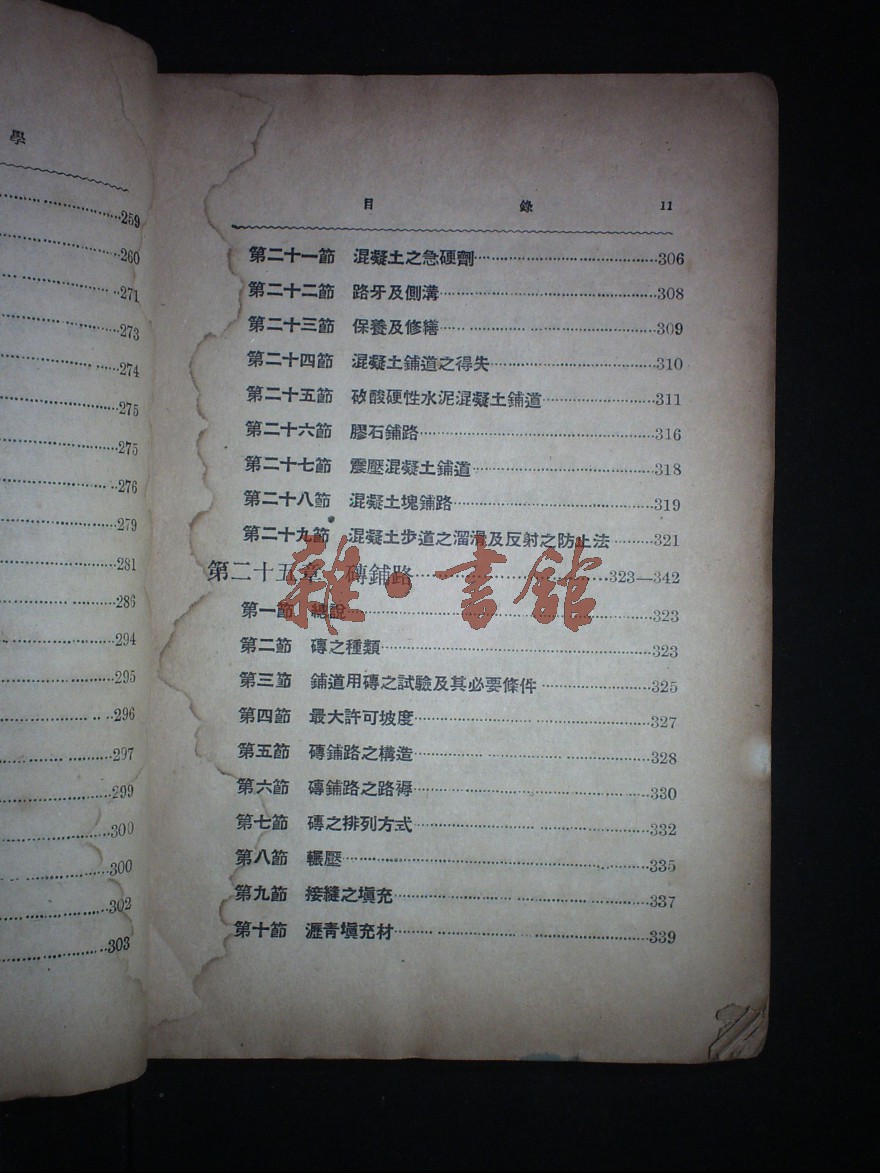 學
259
260
271
273
274
275
275
276
279
281
286
294
295
296
297
299
300
300
302
303
目 錄 11
第二十一節 混凝土之急硬劑 306
第二十二節 路牙及側溝 308
第二十三節 保養及修繕 309
第二十四節 混凝土鋪道之得失 310
第二十五節 矽酸硬性水泥混凝土鋪道 311
第二十六節 膠石鋪路 316
第二十七節 震壓混凝土鋪道 318
第二十八節 混凝土塊鋪路 319
第二十九節 混凝土步道之溜滑及反射之防止法 321
第二十五章 磚鋪路 323—342
第一節 總說 323
第二節 磚之種類 323
第三節 鋪道用磚之試驗及其必要條件 325
第四節 最大許可坡度 327
第五節 磚鋪路之構造 328
第六節 磚鋪路之路褥 330
第七節 磚之排列方式 332
第八節 輾壓 335
第九節 接縫之塡充 337
第十節 瀝青塡充材 339
雜·書館